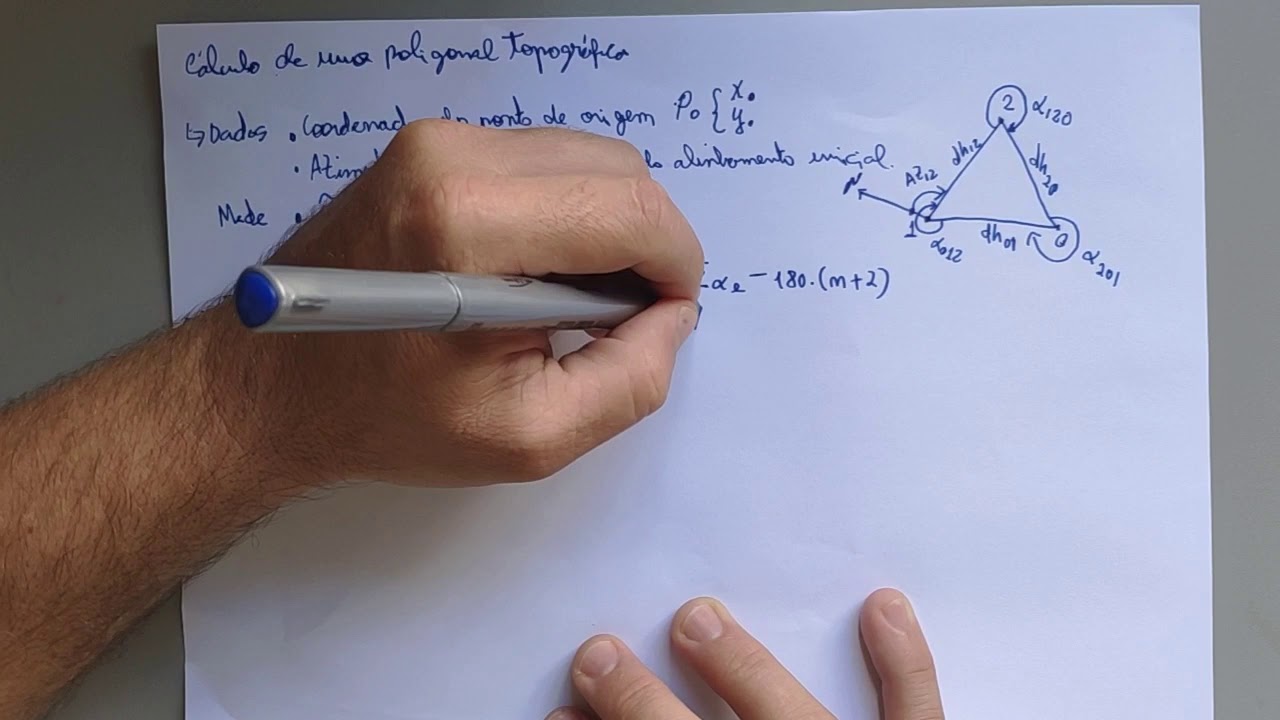 Cálculo de uma poligonal Topográfica
↳ Dados • Coordenad ponto de origem P₀ { X₀
Y₀
• Azim alinhamento inicial.
Mede •
αₑ - 180.(m+2)
2 α₁₂₀
dh₁₂ dh₂₀
N AZ₁₂
1 α₀₁₂ dh₀₁ 0 α₂₀₁